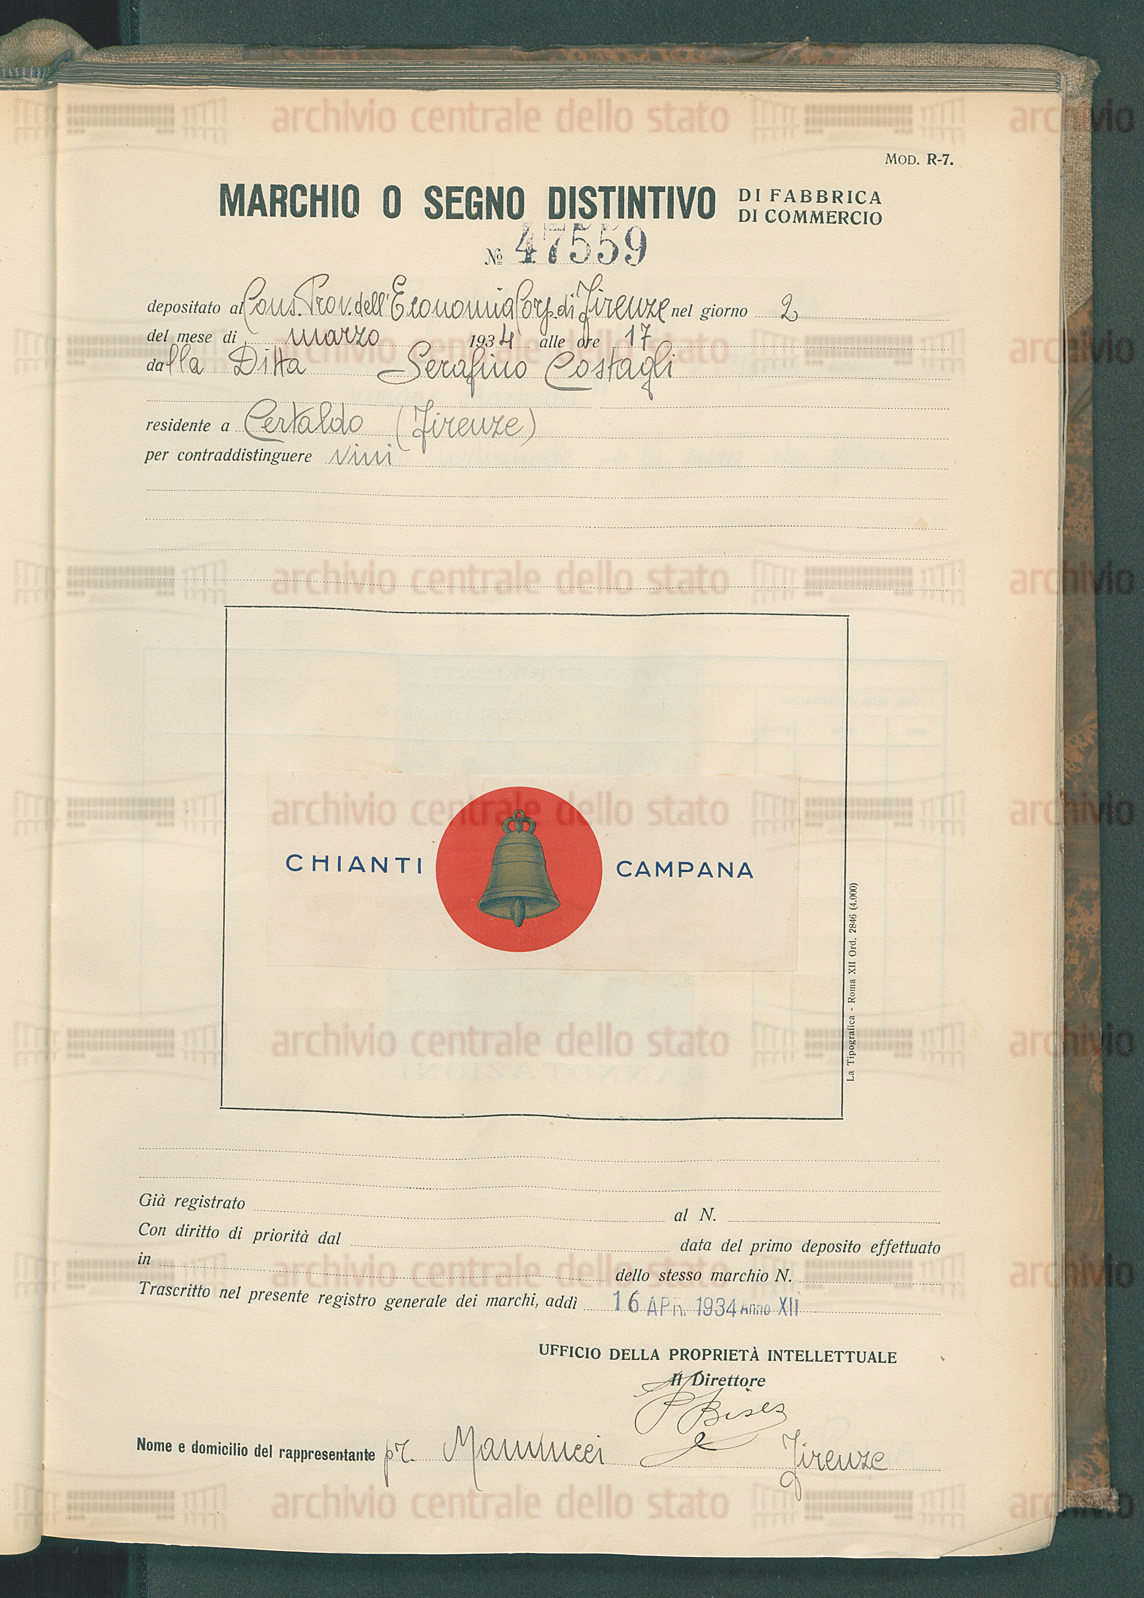 MOD. R-7.
MARCHIO O SEGNO DISTINTIVO DI FABBRICA DI COMMERCIO
№ 47559
depositato al Cons. Prov. dell'Economia Corp. di Firenze nel giorno 2
del mese di marzo 1934 alle ore 17
dalla Ditta Serafino Costagli
residente a Certaldo (Firenze)
per contraddistinguere vini
CHIANTI CAMPANA
La Tipografica - Roma XII Ord. 2846 (4.000)
Già registrato al N.
Con diritto di priorità dal data del primo deposito effettuato
in dello stesso marchio N.
Trascritto nel presente registro generale dei marchi, addì 16 APR. 1934 Anno XII
UFFICIO DELLA PROPRIETÀ INTELLETTUALE
Il Direttore
Nome e domicilio del rappresentante pr. Mannucci Firenze
archivio centrale dello stato archivio
archivio centrale dello stato archivio
archivio centrale dello stato archivio
archivio centrale dello stato archivio
archivio centrale dello stato archivio
archivio centrale dello stato archivio